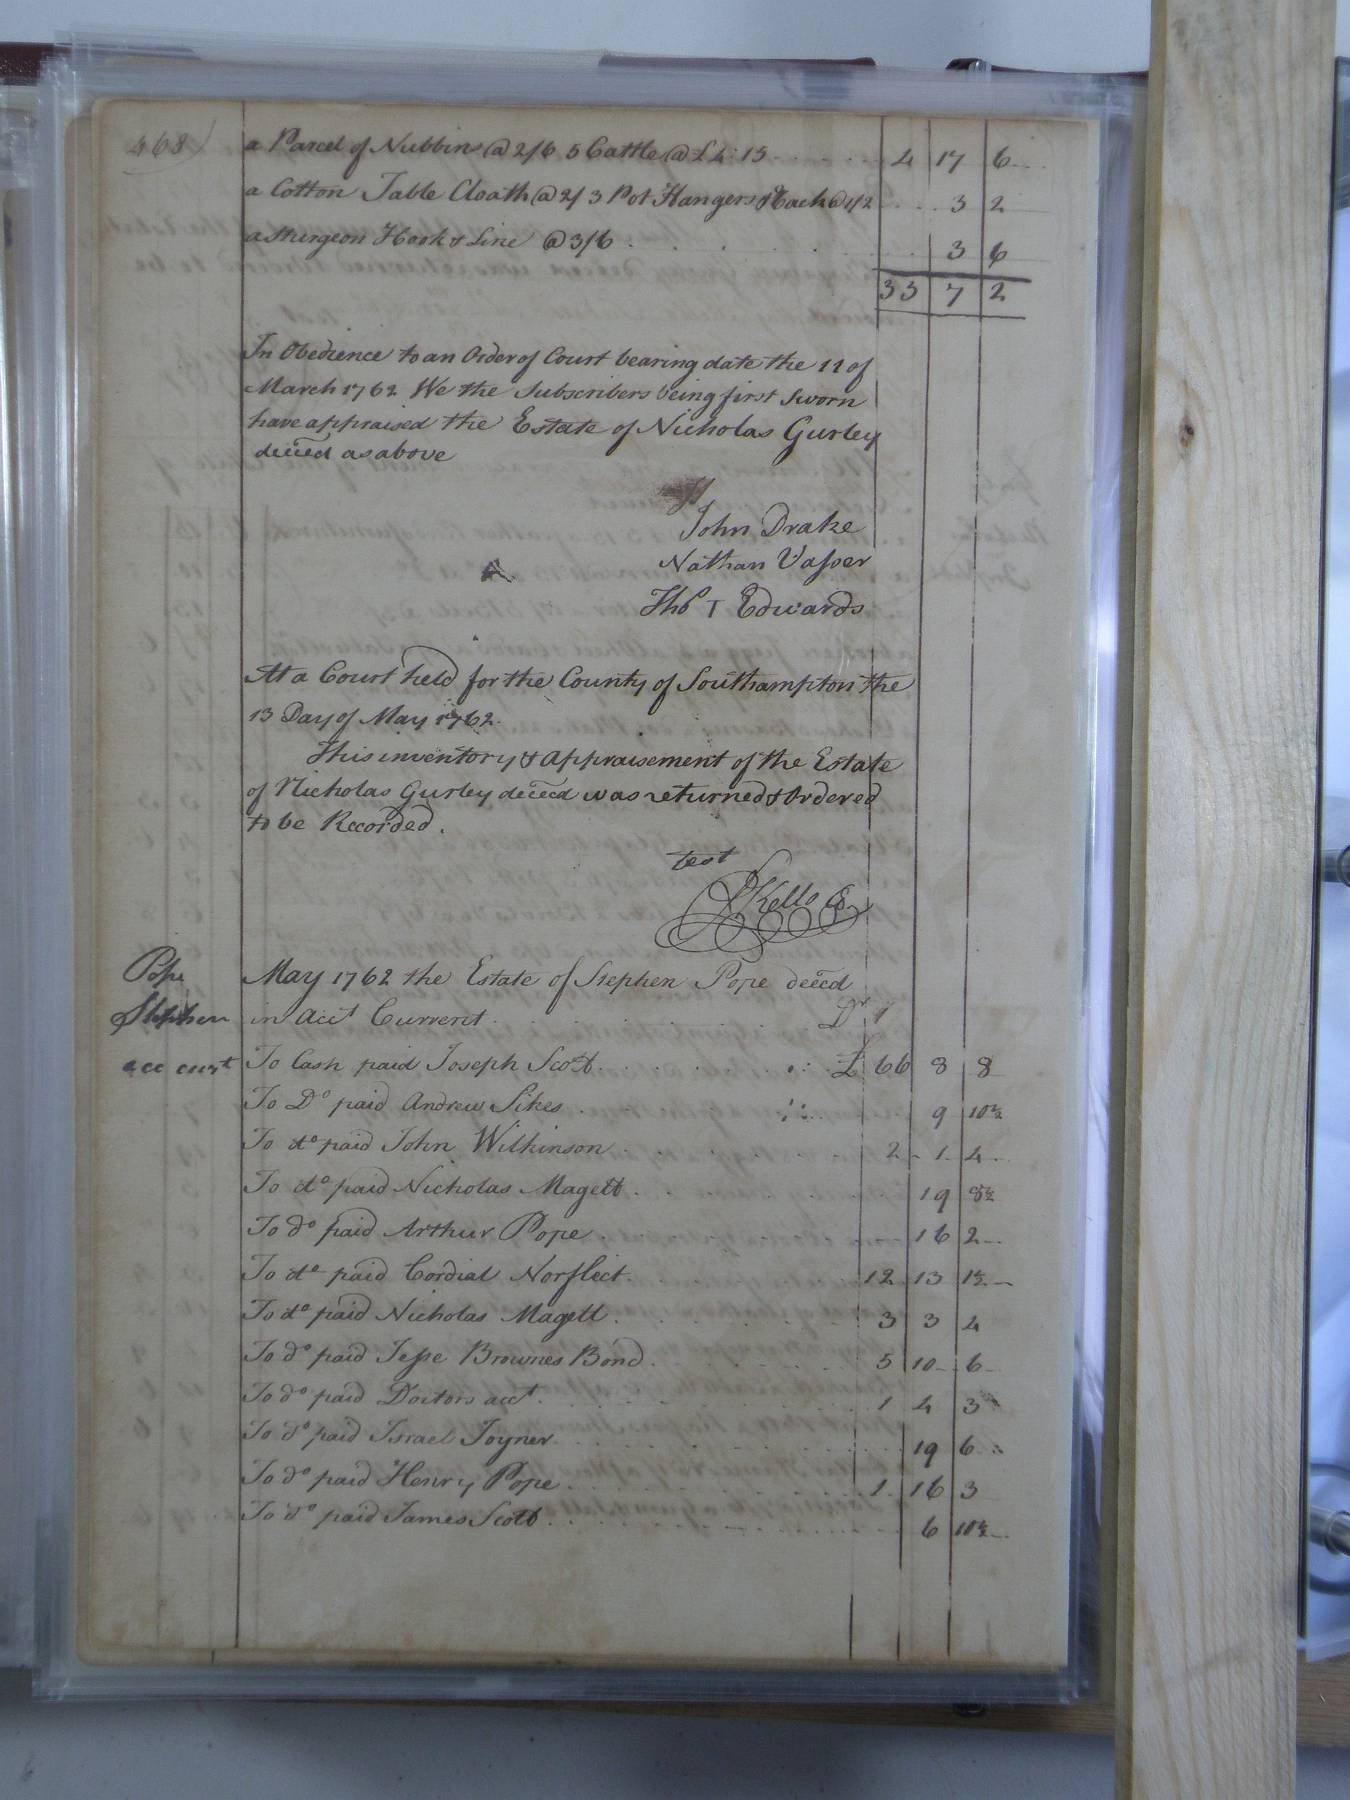 468)
a Parcel of Nubbins @ 2/6 5 Cattle @ £4:15 4 17 6
a Cotton Table Cloath @ 2/ 3 Pot Hangers & Rack @ 1/2 3 2
a Sturgeon Hook & Line @ 3/6 3 6
33 7 2
In Obedience to an Order of Court bearing date the 11 of
March 1762 We the Subscribers being first Sworn
have appraised the Estate of Nicholas Gurley
deced as above
John Drake
Nathan Vasser
Tho T Edwards
At a Court held for the County of Southampton the
13 Day of May 1762.
This inventory & Appraisement of the Estate
of Nicholas Gurley deceed was returned & Ordered
to be Recorded.
test
RKello Cl
Pope May 1762 the Estate of Stephen Pope deced
Stephen in Acct Current Dr
acc curt To Cash paid Joseph Scott £ 66 8 8
To Do paid Andrew Sikes 9 10½
To do paid John Wilkinson 2 1 4
To do paid Nicholas Magett 19 8½
To do paid Arthur Pope 16 2
To do paid Cordial Norfleet 12 13 1½
To do paid Nicholas Magett 3 3 4
To do paid Jesse Brownes Bond 5 10 6
To do paid Doctors acct 1 4 3
To do paid Israel Joyner 19 6
To do paid Henry Pope 1 16 3
To do paid James Scott 6 10½